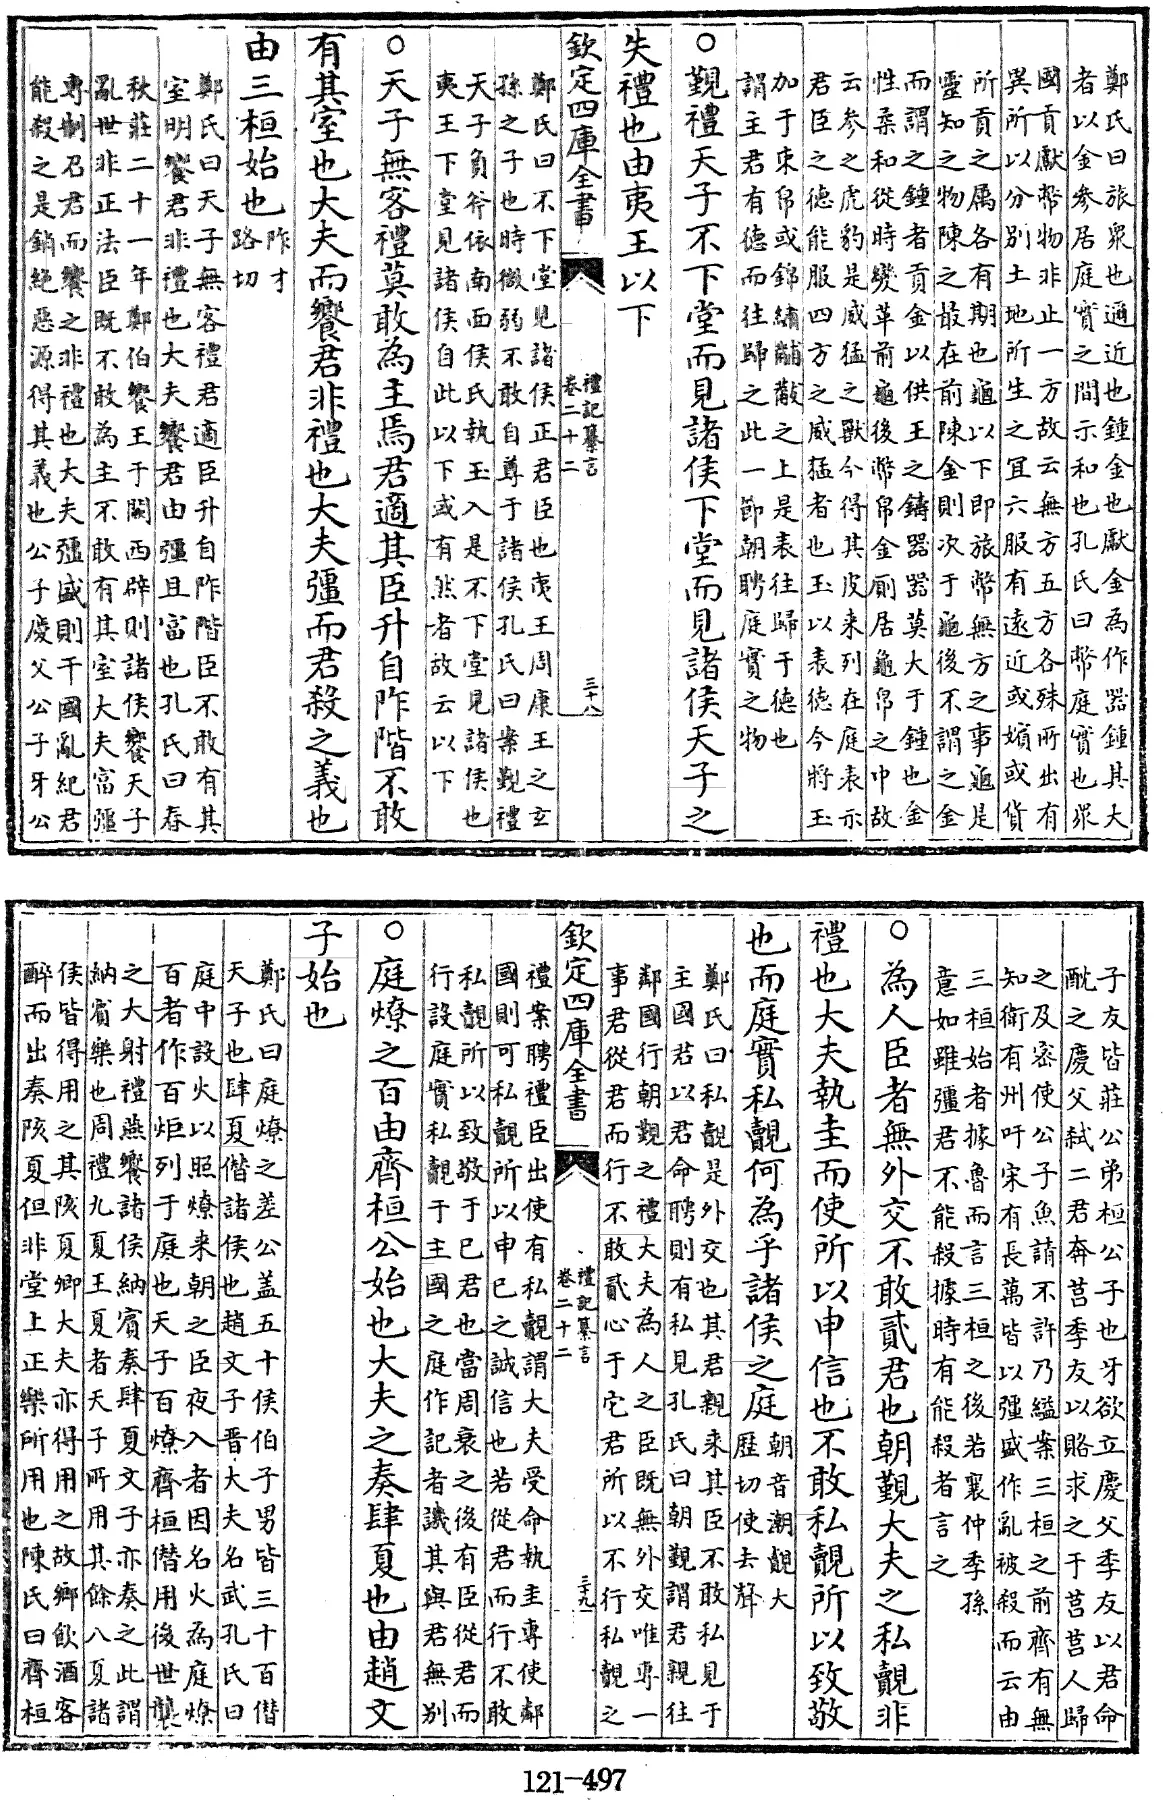 鄭氏曰旅衆也邇近也鍾金也獻金為作器鍾其大
者以金參居庭實之間示和也孔氏曰幣庭實也衆
國貢獻幣物非止一方故云無方五方各殊所出有
異所以分別土地所生之宜六服有遠近或嬪或貨
所貢之屬各有期也龜以下即旅幣無方之事龜是
靈知之物陳之最在前陳金則次于龜後不謂之金
而謂之鍾者貢金以供王之鑄器器莫大于鍾也金
性柔和從時變革前龜後幣帛金厠居龜帛之中故
云參之虎豹是威猛之獸今得其皮来列在庭表示
君臣之德能服四方之威猛者也玉以表德今將玉
加于束帛或錦繡黼黻之上是表往歸于德也
謂主君有德而往歸之此一節朝聘庭實之物
○覲禮天子不下堂而見諸侯下堂而見諸侯天子之
失禮也由夷王以下
欽定四庫全書 禮記纂言 卷二十二 三十八
鄭氏曰不下堂見諸侯正君臣也夷王周康王之玄
孫之子也時微弱不敢自尊于諸侯孔氏曰案覲禮
天子負斧依南面侯氏執玉入是不下堂見諸侯也
夷王下堂見諸侯自此以下或有然者故云以下
○天子無客禮莫敢為主焉君適其臣升自阼階不敢
有其室也大夫而饗君非禮也大夫彊而君殺之義也
由三桓始也阼才路切
鄭氏曰天子無客禮君適臣升自阼階臣不敢有其
室明饗君非禮也大夫饗君由彊且富也孔氏曰春
秋莊二十一年鄭伯饗王于闕西辟則諸侯饗天子
亂世非正法臣既不敢為主不敢有其室大夫富彊
專制召君而饗之非禮也大夫彊盛則干國亂紀君
能殺之是銷絶惡源得其義也公子慶父公子牙公
子友皆莊公弟桓公子也牙欲立慶父季友以君命
酖之慶父弑二君奔莒季友以賂求之于莒莒人歸
之及密使公子魚請不許乃縊案三桓之前齊有無
知衛有州吁宋有長萬皆以彊盛作亂被殺而云由
三桓始者據魯而言三桓之後若襄仲季孫
意如雖彊君不能殺據時有能殺者言之
○為人臣者無外交不敢貳君也朝覲大夫之私覿非
禮也大夫執圭而使所以申信也不敢私覿所以致敬
也而庭實私覿何為乎諸侯之庭朝音潮覿大歷切使去聲
鄭氏曰私覿是外交也其君親来其臣不敢私見于
主國君以君命聘則有私見孔氏曰朝覲謂君親往
鄰國行朝覲之禮大夫為人之臣既無外交唯專一
事君從君而行不敢貳心于它君所以不行私覿之
欽定四庫全書 禮記纂言 卷二十二 三十九
禮案聘禮臣出使有私覿謂大夫受命執圭專使鄰
國則可私覿所以申已之誠信也若從君而行不敢
私覿所以致敬于已君也當周衰之後有臣從君而
行設庭實私覿于主國之庭作記者譏其與君無别
○庭燎之百由齊桓公始也大夫之奏肆夏也由趙文
子始也
鄭氏曰庭燎之差公盖五十侯伯子男皆三十百僣
天子也肆夏僣諸侯也趙文子晋大夫名武孔氏曰
庭中設火以照燎来朝之臣夜入者因名火為庭燎
百者作百炬列于庭也天子百燎齊桓僣用後世襲
之大射禮燕饗諸侯納賔奏肆夏文子亦奏之此謂
納賔樂也周禮九夏王夏者天子所用其餘八夏諸
侯皆得用之其陔夏卿大夫亦得用之故鄉飲酒客
醉而出奏陔夏但非堂上正樂所用也陳氏曰齊桓
121-497